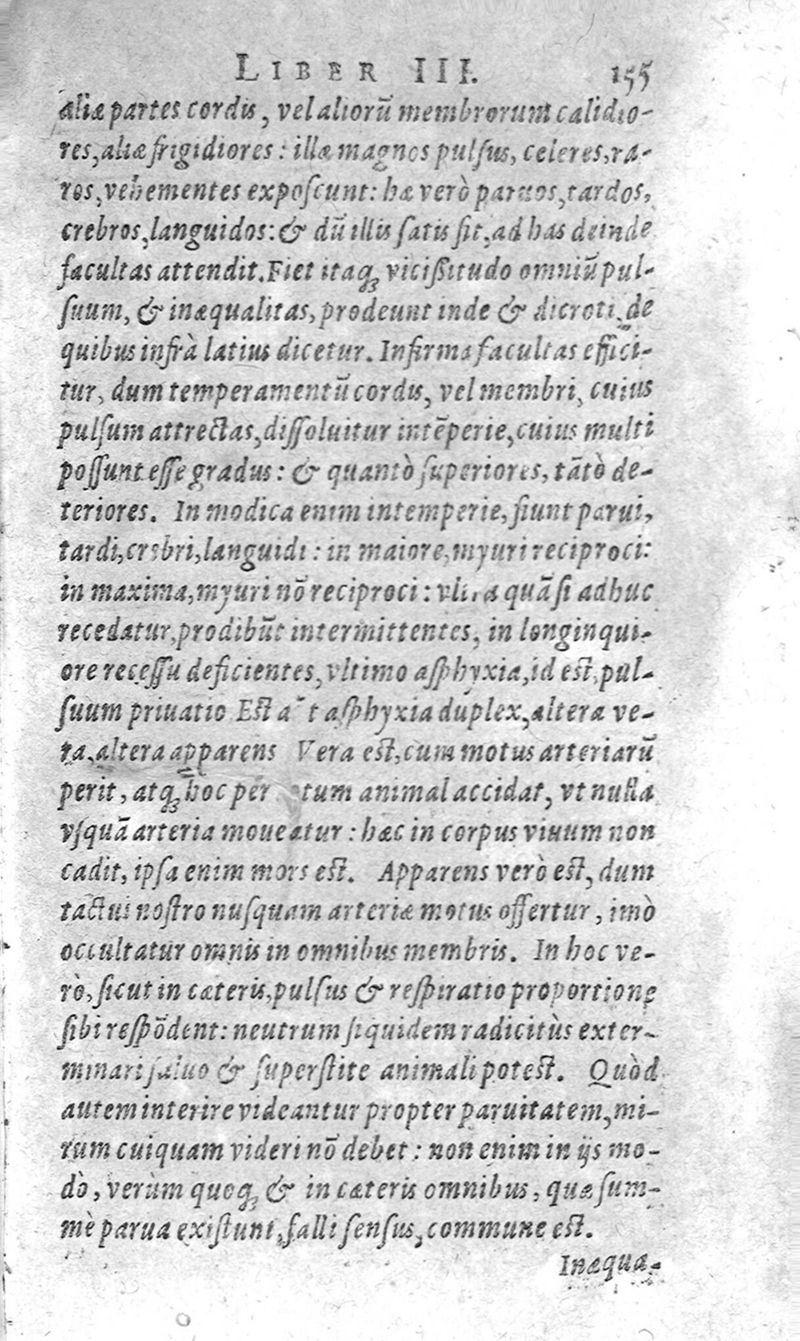 LIBER III. 155
aliæ partes cordis, vel aliorũ membrorum calidio-
res, aliæ frigidiores: illæ magnos pulſus, celeres, ra-
ros, vehementes expoſcunt: hæ verò paruos, tardos,
crebros, languidos: & dũ illis ſatis ſit, ad has deinde
facultas attendit. Fiet itaq; viciſſitudo omniũ pul-
ſuum, & inæqualitas, prodeunt inde & dicroti, de
quibus infrà latius dicetur. Infirma facultas effici-
tur, dum temperamentũ cordis, vel membri, cuius
pulſum attrectas, diſſoluitur intẽperie, cuius multi
poſſunt eſſe gradus: & quantò ſuperiores, tãtò de-
teriores. In modica enim intemperie, fiunt parui,
tardi, crebri, languidi: in maiore, myuri reciproci:
in maxima, myuri nõ reciproci: vltra quã ſi adhuc
recedatur, prodibũt intermittentes, in longinqui-
ore receſſu deficientes, vltimo aſphyxia, id eſt, pul-
ſuum priuatio Eſt a t aſphyxia duplex, altera ve-
ra, altera apparens Vera eſt, cum motus arteriarũ
perit, atq; hoc per tum animal accidat, vt nulla
vſquã arteria moueatur: hæc in corpus viuum non
cadit, ipſa enim mors eſt. Apparens verò eſt, dum
tactui noſtro nuſquam arteriæ motus offertur, imò
occultatur omnis in omnibus membris. In hoc ve-
rò, ſicut in cæteris, pulſus & reſpiratio proportione
ſibi reſpõdent: neutrum ſiquidem radicitùs exter-
minari ſaluo & ſuperſtite animali poteſt. Quòd
autem interire videantur propter paruitatem, mi-
rum cuiquam videri nõ debet: non enim in ijs mo-
dò, verùm quoq; & in cæteris omnibus, quæ ſum-
mè parua exiſtunt, falli ſenſus, commune eſt.
Inæqua-